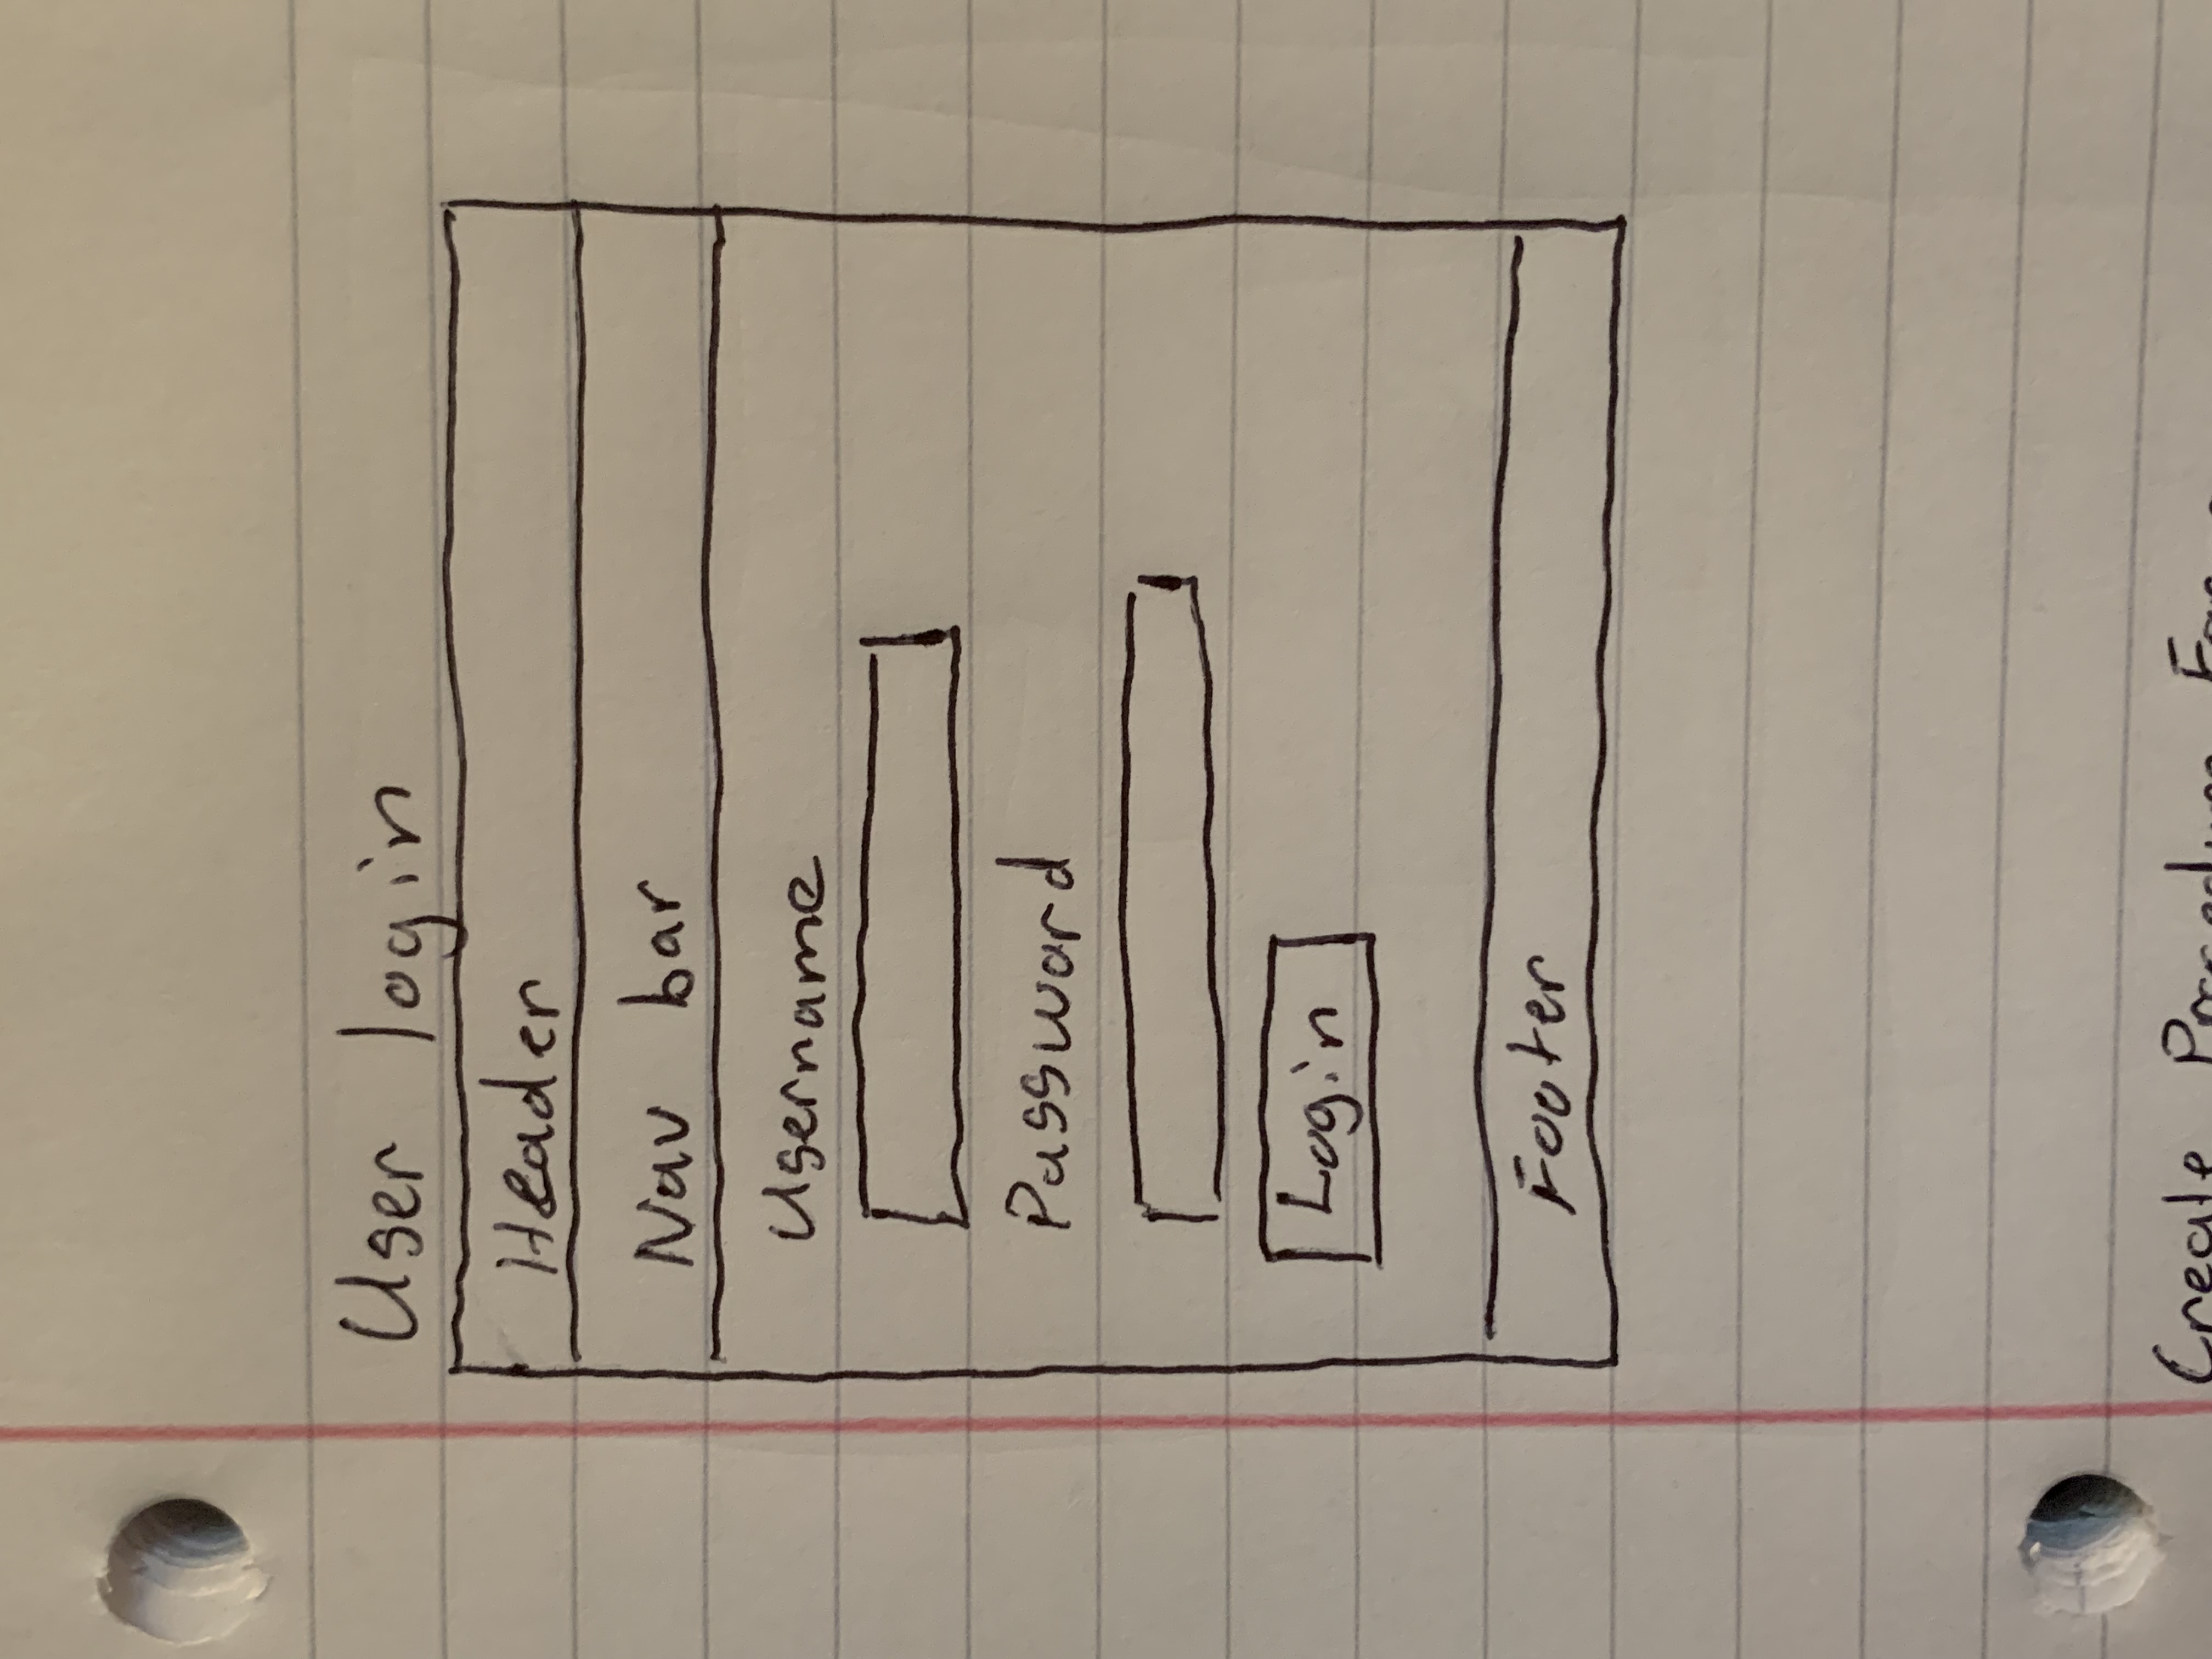 User login
Header
Nav bar
Username
Password
Login
Footer
Create